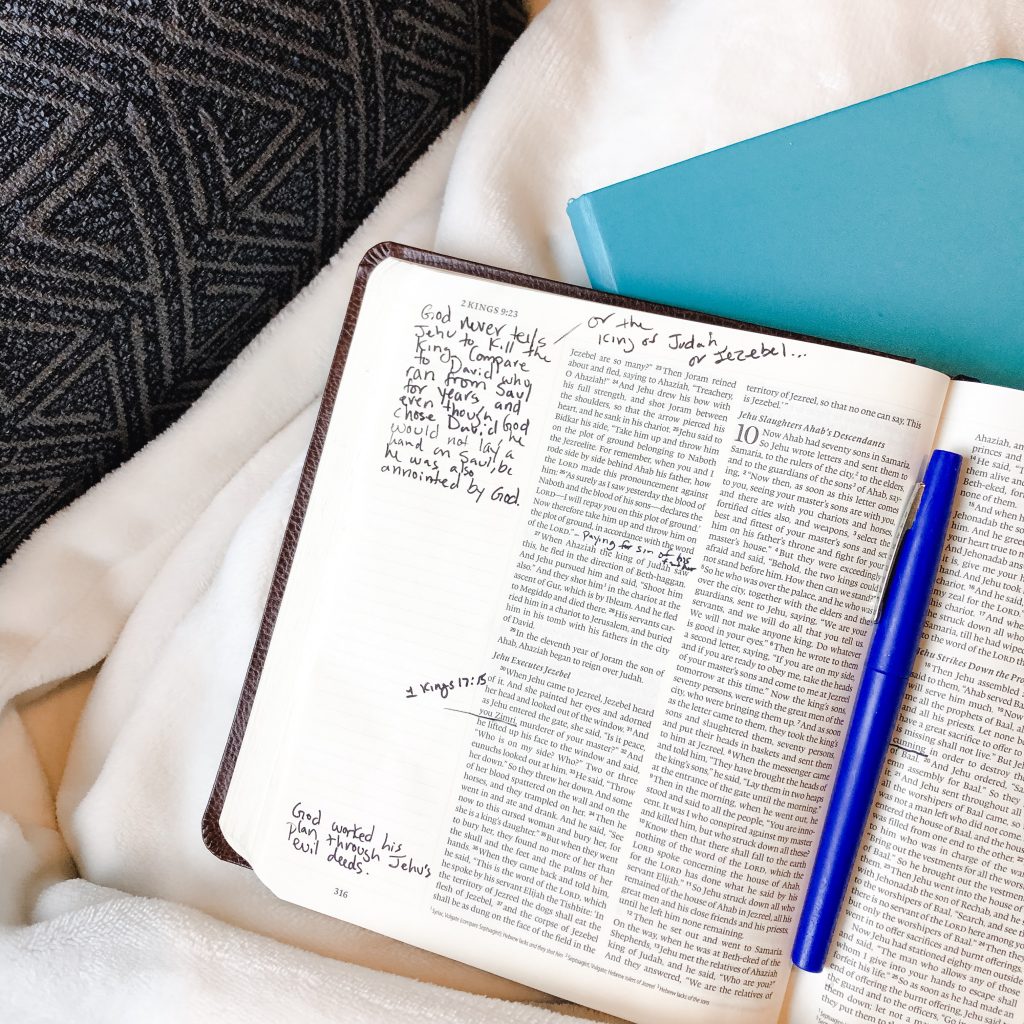 2 KINGS 9:23
God never tells
Jehu to kill the
King. Compare
to David who
ran from Saul
for years and
even though God
chose David, he
would not lay a
hand on Saul, bc
he was also
annointed by God.
or the
king of Judah
or Jezebel...
Jezebel are so many?” 23 Then Joram reined
about and fled, saying to Ahaziah, “Treachery,
O Ahaziah!” 24 And Jehu drew his bow with
his full strength, and shot Joram between
the shoulders, so that the arrow pierced his
heart, and he sank in his chariot. 25 Jehu said to
Bidkar his aide, “Take him up and throw him
on the plot of ground belonging to Naboth
the Jezreelite. For remember, when you and I
rode side by side behind Ahab his father, how
the LORD made this pronouncement against
him: 26 ‘As surely as I saw yesterday the blood of
Naboth and the blood of his sons—declares the
LORD—I will repay you on this plot of ground.’
Now therefore take him up and throw him on
the plot of ground, in accordance with the word
of the LORD.” - Paying for sin of his
27 When Ahaziah the king of Judah saw
this, he fled in the direction of Beth-haggan.
And Jehu pursued him and said, “Shoot him
also.” And they shot him1 in the chariot at the
ascent of Gur, which is by Ibleam. And he fled
to Megiddo and died there. 28 His servants car-
ried him in a chariot to Jerusalem, and buried
him in his tomb with his fathers in the city
of David.
29 In the eleventh year of Joram the son of
Ahab, Ahaziah began to reign over Judah.
Jehu Executes Jezebel
30 When Jehu came to Jezreel, Jezebel heard
of it. And she painted her eyes and adorned
her head and looked out of the window. 31 And
as Jehu entered the gate, she said, “Is it peace,
you Zimri, murderer of your master?” 32 And
he lifted up his face to the window and said,
“Who is on my side? Who?” Two or three
eunuchs looked out at him. 33 He said, “Throw
her down.” So they threw her down. And some
of her blood spattered on the wall and on the
horses, and they trampled on her. 34 Then he
went in and ate and drank. And he said, “See
now to this cursed woman and bury her, for
she is a king’s daughter.” 35 But when they went
to bury her, they found no more of her than
the skull and the feet and the palms of her
hands. 36 When they came back and told him,
he said, “This is the word of the LORD, which
he spoke by his servant Elijah the Tishbite: ‘In
the territory of Jezreel the dogs shall eat the
flesh of Jezebel, 37 and the corpse of Jezebel
shall be as dung on the face of the field in the
1 Kings 17:15
God worked his
plan through Jehu's
evil deeds.
316
territory of Jezreel, so that no one can say, This
is Jezebel.’”
Jehu Slaughters Ahab’s Descendants
10 Now Ahab had seventy sons in Samaria.
So Jehu wrote letters and sent them to
Samaria, to the rulers of the city,2 to the elders,
and to the guardians of the sons3 of Ahab, say-
ing, 2 “Now then, as soon as this letter comes
to you, seeing your master’s sons are with you,
and there are with you chariots and horses,
fortified cities also, and weapons, 3 select the
best and fittest of your master’s sons and set
him on his father’s throne and fight for your
master’s house.” 4 But they were exceedingly
afraid and said, “Behold, the two kings could
not stand before him. How then can we stand?”
5 So he who was over the palace, and he who was
over the city, together with the elders and the
guardians, sent to Jehu, saying, “We are your
servants, and we will do all that you tell us.
We will not make anyone king. Do whatever
is good in your eyes.” 6 Then he wrote to them
a second letter, saying, “If you are on my side,
and if you are ready to obey me, take the heads
of your master’s sons and come to me at Jezreel
tomorrow at this time.” Now the king’s sons,
seventy persons, were with the great men of the
city, who were bringing them up. 7 And as soon
as the letter came to them, they took the king’s
sons and slaughtered them, seventy persons,
and put their heads in baskets and sent them
to him at Jezreel. 8 When the messenger came
and told him, “They have brought the heads of
the king’s sons,” he said, “Lay them in two heaps
at the entrance of the gate until the morning.”
9 Then in the morning, when he went out, he
stood and said to all the people, “You are inno-
cent. It was I who conspired against my master
and killed him, but who struck down all these?
10 Know then that there shall fall to the earth
nothing of the word of the LORD, which the
LORD spoke concerning the house of Ahab,
for the LORD has done what he said by his
servant Elijah.” 11 So Jehu struck down all who
remained of the house of Ahab in Jezreel, all his
great men and his close friends and his priests,
until he left him none remaining.
12 Then he set out and went to Samaria.
On the way, when he was at Beth-eked of the
Shepherds, 13 Jehu met the relatives of Ahaziah
king of Judah, and he said, “Who are you?”
And they answered, “We are the relatives of
1 Syriac, Vulgate (compare Septuagint); Hebrew lacks and they shot him 2 Septuagint, Vulgate; Hebrew rulers of Jezreel 3 Hebrew lacks of the sons
Ahaziah, and
princes and
14 He said, “T
them alive and
Beth-eked, for
none of them.
15 And when he
Jehonadab the so
him. And he gree
your heart true to m
And Jehonadab ans
it is, give me your h
hand. And Jehu took
16 And he said
my zeal for the LORD.
his chariot. 17 And whe
he struck down all who
Samaria, till he had wiped
to the word of the LORD th
Jehu Strikes Down the Pro
18 Then Jehu assembled
said to them, “Ahab served Ba
will serve him much. 19 Now
me all the prophets of Baal, all
and all his priests. Let none be
have a great sacrifice to offer to
is missing shall not live.” But Je
cunning in order to destroy the
of Baal. 20 And Jehu ordered, “Sa
emn assembly for Baal.” So they
21 And Jehu sent throughout all
all the worshipers of Baal came,
was not a man left who did not come.
the house of Baal, and the house
was filled from one end to the other. 22
to him who was in charge of the war
“Bring out the vestments for all the wor
of Baal.” So he brought out the vestme
23 Then Jehu went into the house of
with Jehonadab the son of Rechab, and he s
to the worshipers of Baal, “Search, and see
there is no servant of the LORD here among you,
but only the worshipers of Baal.” 24 Then they
went in to offer sacrifices and burnt offerings.
Now Jehu had stationed eighty men outside
and said, “The man who allows any of those
whom I give into your hands to escape shall
forfeit his life.” 25 So as soon as he had made an
end of offering the burnt offering, Jehu said to
the guard and to the officers, “Go in
them down; let not a man
they put them to